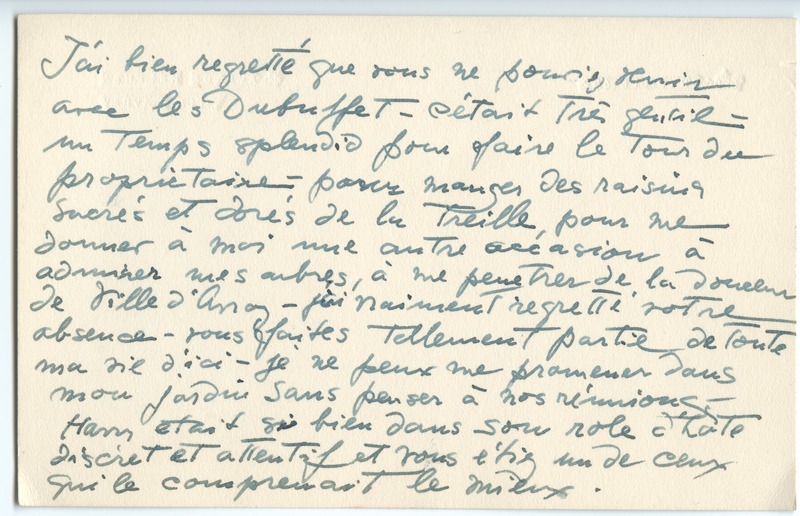 J'ai bien regretté que vous ne pouviez venir
avec les Dubuffet - c'était très gentil -
un temps splendid pour faire le tour du
propriétaire - pour manger des raisins
sucrés et dorés de la Treille, pour me
donner à moi une autre occasion à
admirer mes arbres, à me penetrer de la douceur
de Ville d'Avray - j'ai vraiment regretté votre
absence - vous faites tellement partie de toute
ma vie d'ici - je ne peux me promener dans
mon jardin sans penser à nos réunions -
Harry etait si bien dans son role d'hôte
discret et attentif et vous étiez un de ceux
qui le comprenait le mieux.